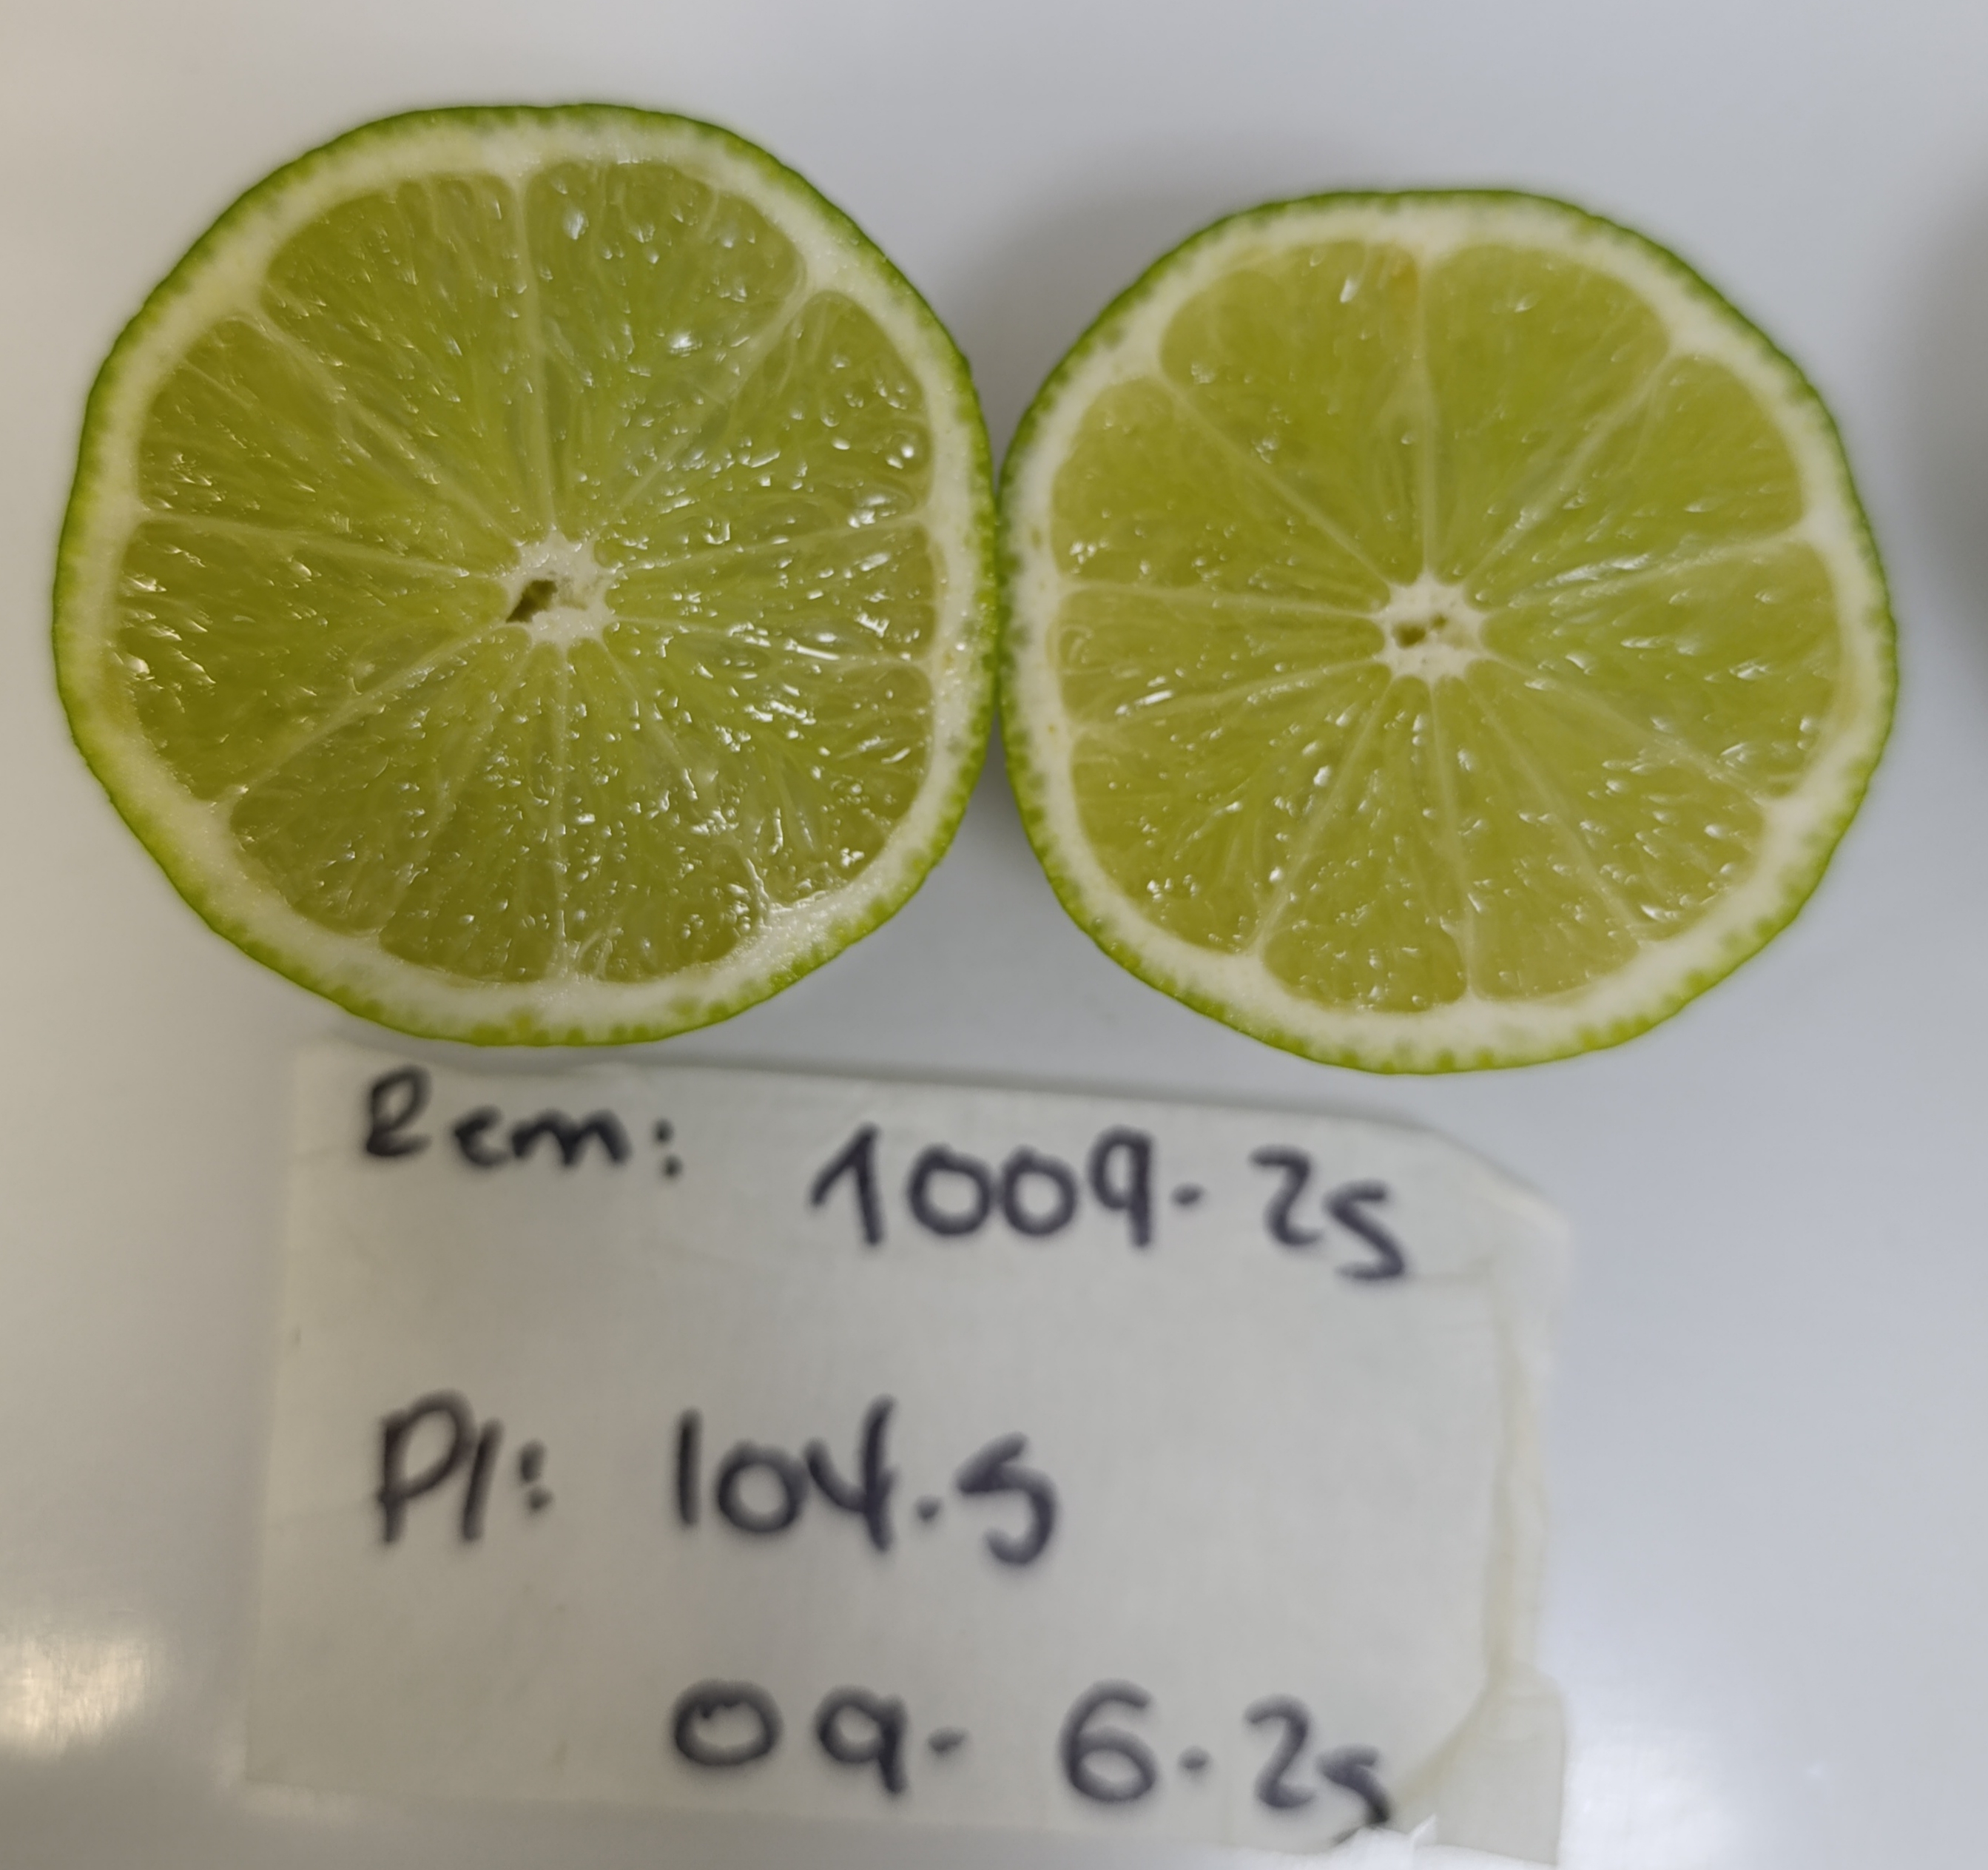 Rem: 1009-25
Pl: 104.5
09-6-25